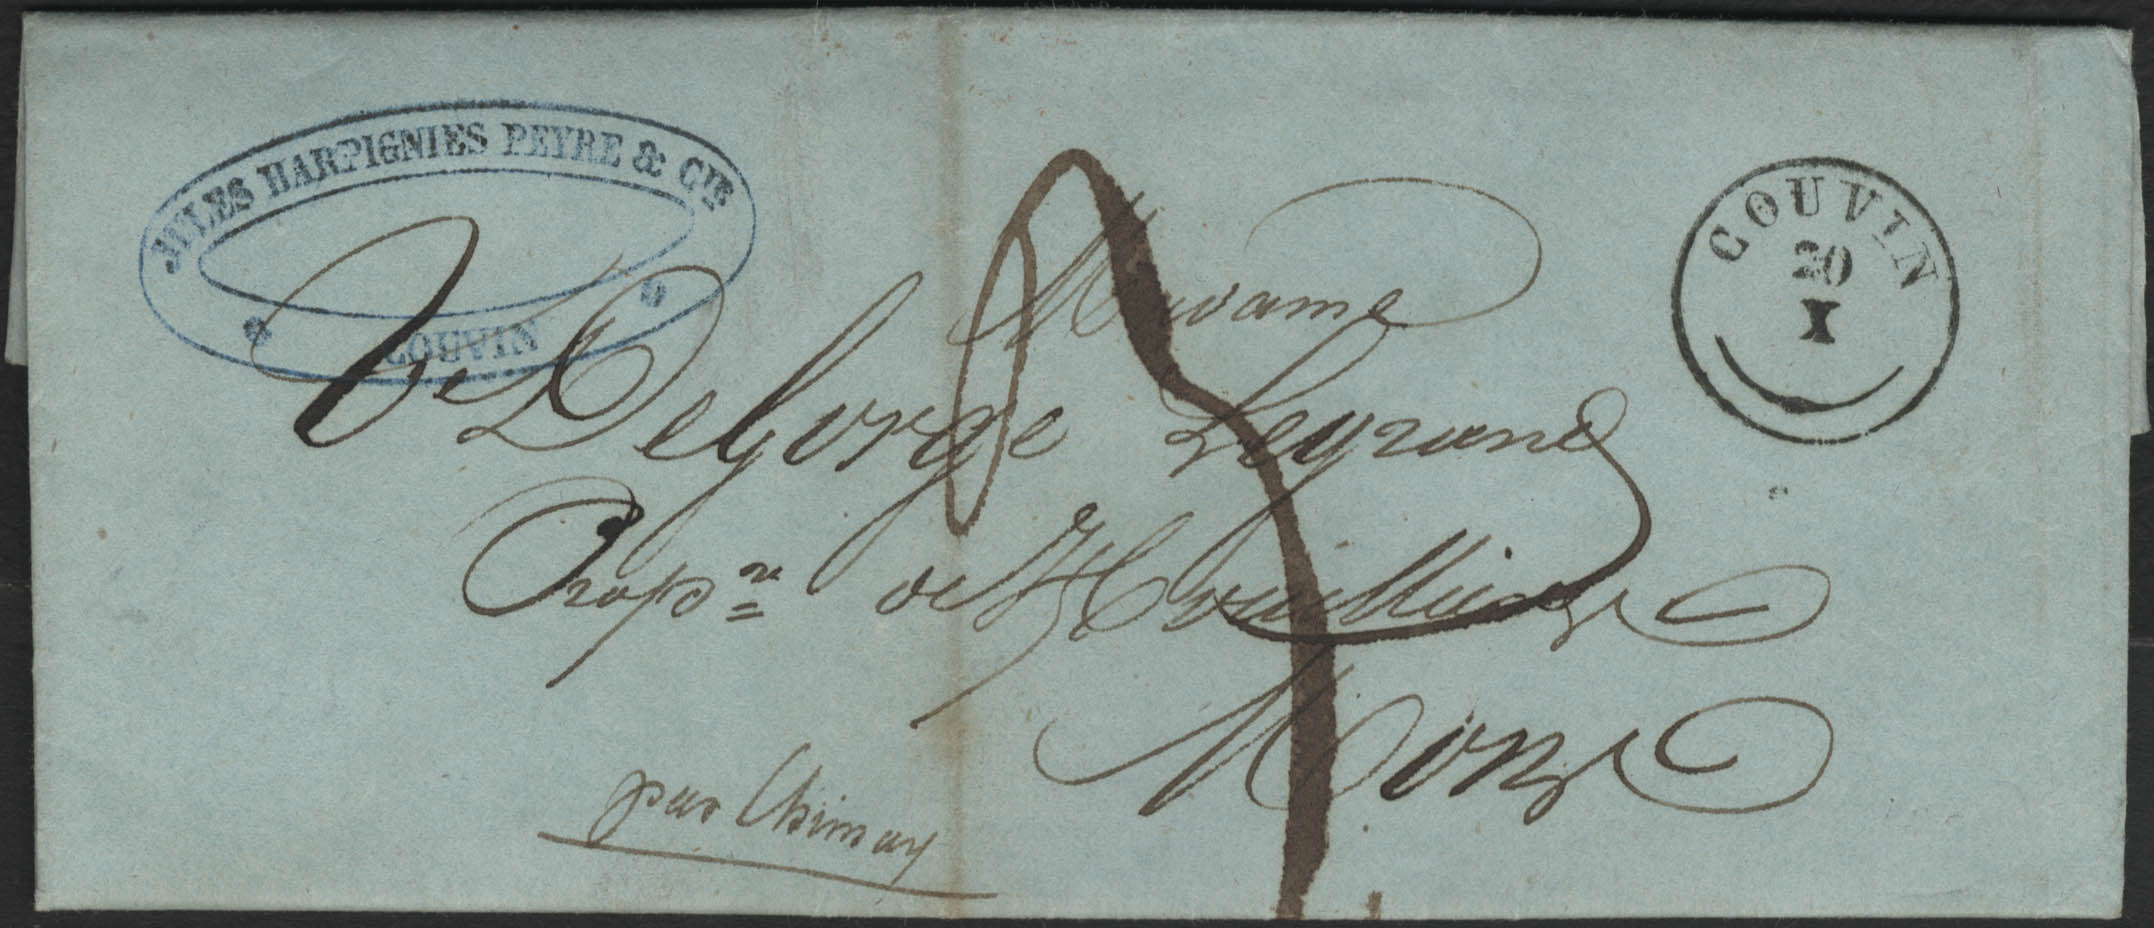 JULES HARPIGNIES PEYRE & CIE
COUVIN
COUVIN
20
X
Madame
Ve DeGorge Legrand
Propre de Houillières
Mons
par Chimay